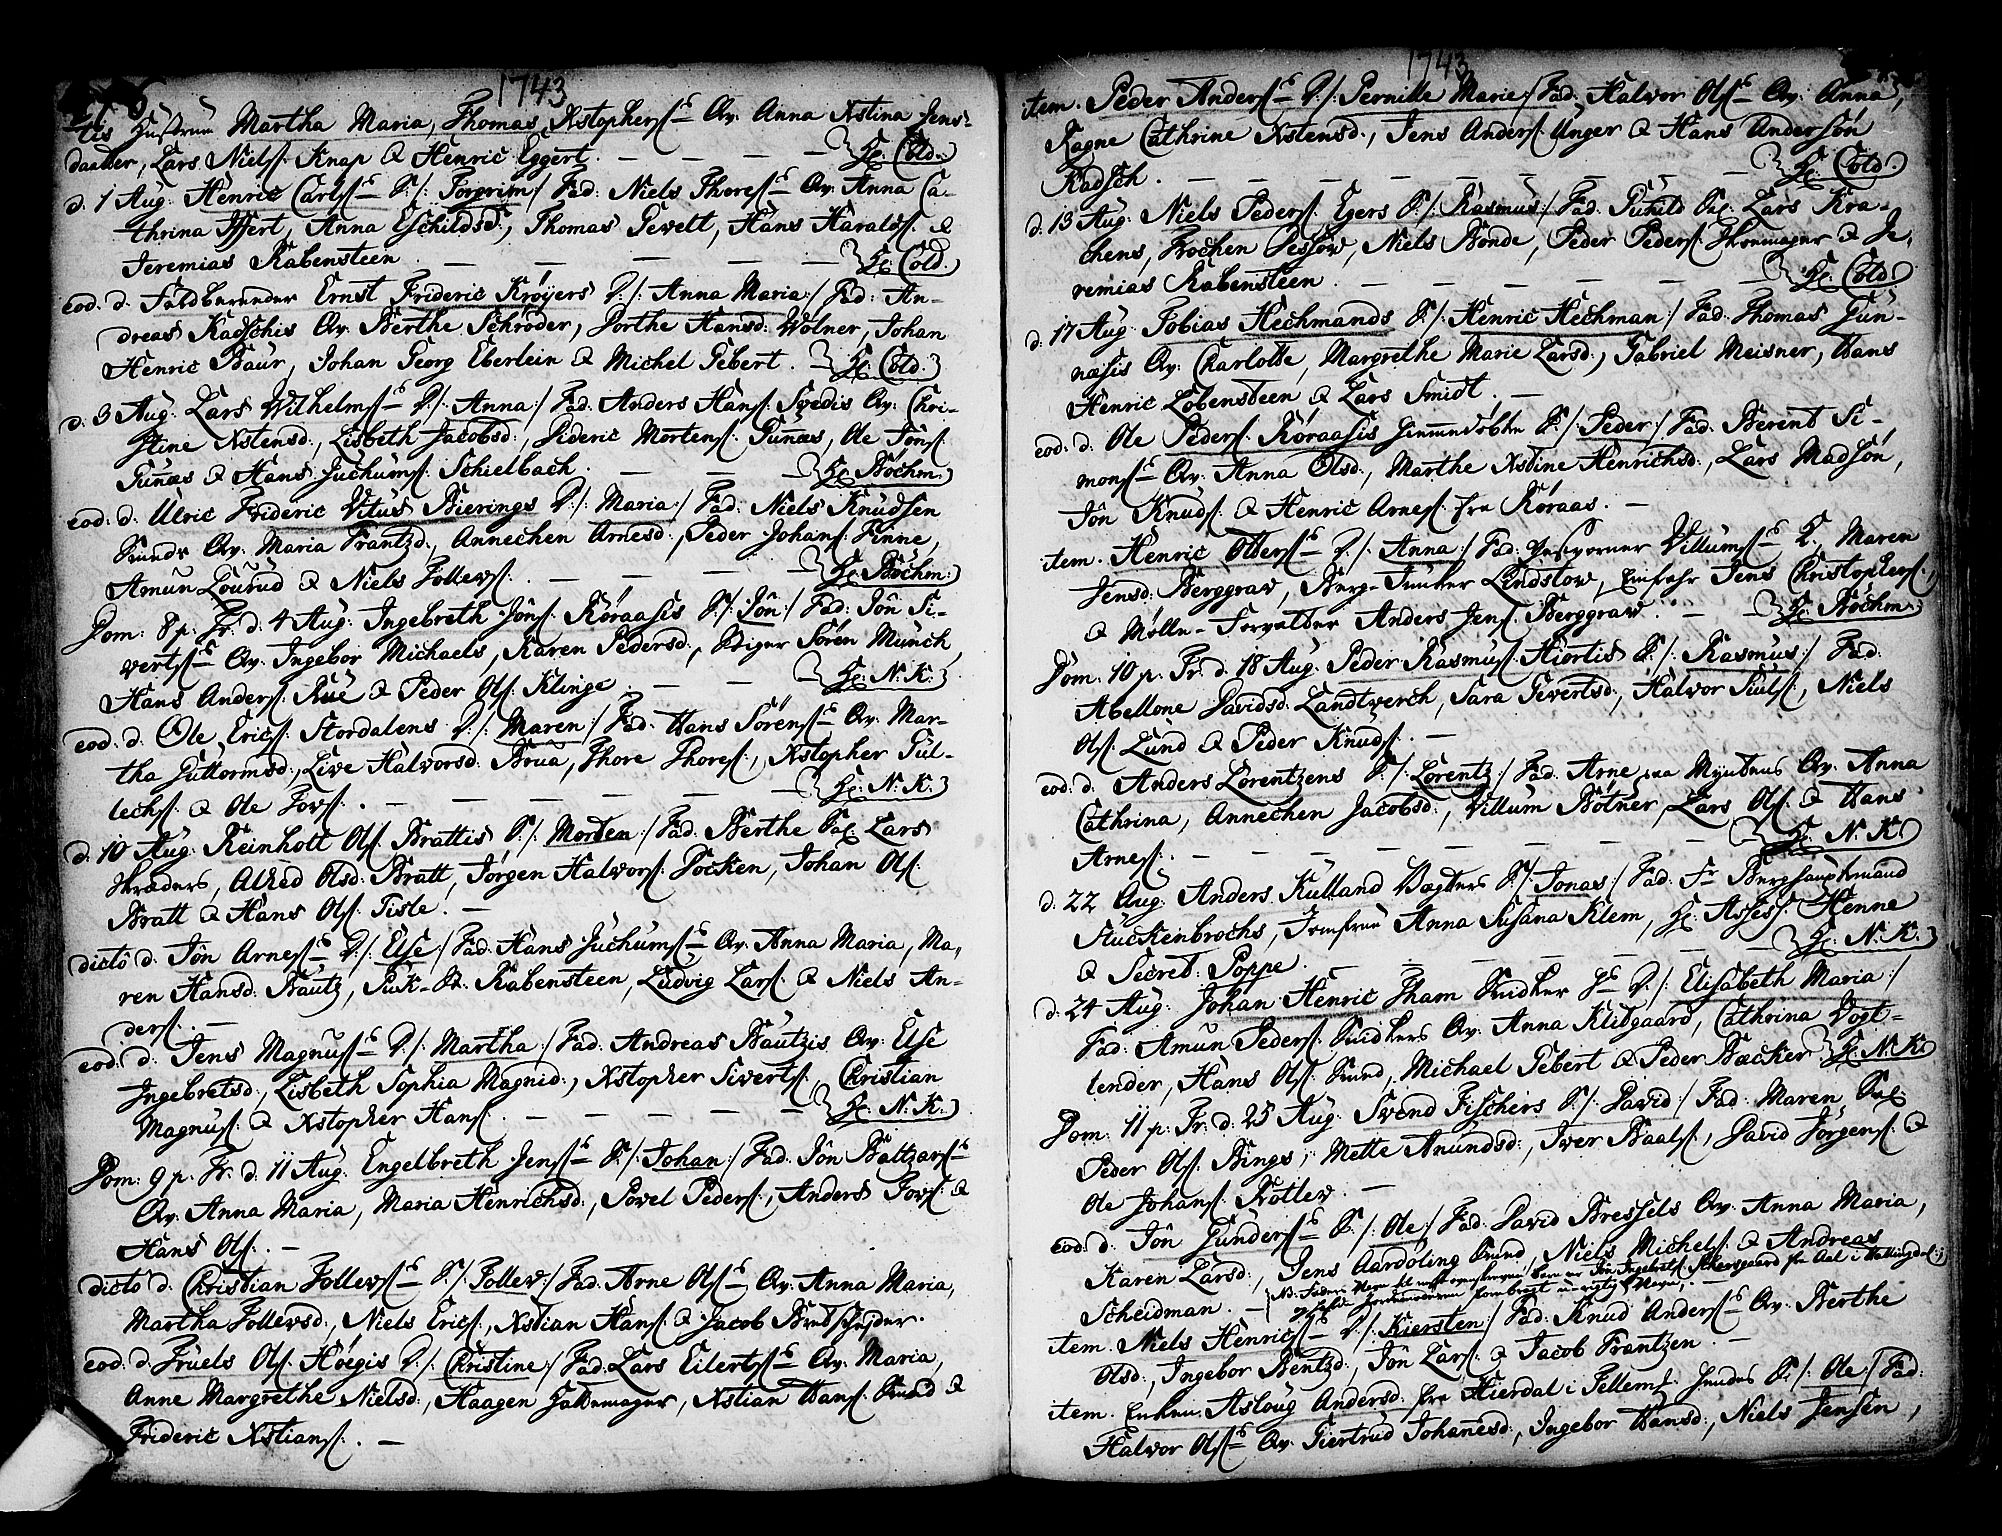 1743
tis Hustrue Martha Maria, Thomas Xstophers˜ Qv: Anna Xstina Jens-
daatter, Lars Niels: Knap & Henric Eggert. — Hr: Cold.
d. 1 Aug: Henric Carls˜ D./: Torgrim:/ Fad: Niels Thores˜ Qv: Anna Ca-
thrina Iffert, Anna Eschildsd:, Thomas Gevelt, Hans Haralds: &
Jeremias Rabensteen. — Hr: Cold.
eod: d. Frideric Krøyers D:/: Anna Maria:/ Fad: An-
dreas Kadschis Qv: Berthe Schrøder, Dorthe Hansd: Wolner, Johan
Henric Baur, Johan Georg Eberlein & Michel Gebert. Hr: Cold.
d. 3 Aug: Lars Wilhelms˜ D./: Anna:/ Fad: Anders Hans: Svedis Qv: Chri-
stine Xstensd:, Lisbeth Jacobsd:, Dideric Mortens: Gunæs, Ole Jøns:
Gunæs & Hans Juchums: Schielbach. — Hr: Bøchm.
eod: d. Ulric Frideric Vitus Bierings D:/: Maria:/ Fad: Niels Knudsen
Smeds Qv: Maria Frantzd:, Annechen Arnesd:, Peder Johans: Finne,
Amun Lourud & Niels Tollevs: — Hr: Bøchm:
Dom: 8 p. Tr: d. 4 Aug: Ingebreth Jøns: Røraasis S:/: Jøn:/ Fad: Jøn Si-
verts˜ Qv: Ingebor Michaels, Karen Pedersd:, Søren Munch,
Hans Anders: Rue & Peder Ols: Klinge. — Hr: N. K.
eod: d. Ole Erics: Stordalens D:/: Maren:/ Fad: Hans Sørens˜ Qv: Mar-
tha Guttormsd:, Live Halvorsd: Brua, Thore Thores:, Xstopher Gul-
lechs: & Ole Tovs: — Hr: N. K.
d. 10 Aug: Reinholt Ols: Brattis S:/: Morten:/ Fad: Berthe Sal: Lars
Skræders, Alhed Olsd: Bratt, Jørgen Halvors: Pocken, Johan Ols:
Bratt & Hans Ols: Tisle. —
dicto d. Jøn Arnes˜ D:/: Else:/ Fad: Hans Juchums˜ Qv: Anna Maria, Ma-
ren Hansd: Bautz, Rabensteen, Ludvig Lars: & Niels An-
ders: —
eod: d. Jens Magnus˜ D:/: Martha:/ Fad: Andreas Bautzis Qv: Else
Ingebretsd:, Lisbeth Sophia Magnid:, Xstopher Siverts: Christian
Magnus: & Xstopher Hans: — Hr: N. K.
Dom: 9 p. Tr: d. 11 Aug: Engelbreth Jens˜ S:/: Johan:/ Fad: Jøn Baltzars˜
Qv: Anna Maria, Maria Henrichsd:, Povel Peders:, Anders Tovs: &
Hans Ols: —
dicto d: Christian Tollevs˜ S:/: Tollev:/ Fad: Arne Ols˜ Qv: Anna Maria,
Martha Tollevsd:, Niels Erics:, Xstian Hans: & Jacob
eod: d. Truels Ols: Høegis D:/: Christine:/ Fad: Lars Eilerts˜ Qv: Maria,
Anne Margrethe Nielsd:, Haagen Hattemager, Xstian Hans: Smed &
Frideric Xstians: —
1743
item. Peder Anders˜ D:/: Pernille Marie:/ Fad: Halvor Ols˜ Qv: Anna,
Ragne Cathrine Xstensd:, Jens Anders: Unger & Hans Andersøn
Kadsch. — Hr: Cold.
d. 13 Aug: Niels Peders: Egers S:/: Rasmus:/ Fad: Guhild Sal: Lars Kra-
chens, Jochen Dessow, Niels Bonde, Peder Peders: Skomager & Je-
remias Rabensteen. — Hr: Cold.
d. 17 Aug: Tobias Hechmands S:/: Henric Hechman:/ Fad: Thomas Gun-
næsis Qv: Charlotte, Margrethe Marie Larsd:, Gabriel Meisner, Hans
Henric Lobensteen & Lars Smidt. —
eod: d. Ole Peders: Røraasis hiemmedøbte S:/: Peder:/ Fad: Berent Si-
mons˜ Qv: Anna Olsd:, Marthe Xstine Henrichsd:, Lars Madsøn,
Jøn Knuds: & Henric Arnes: fra Røraas. —
item. Henric Otters˜ D:/: Anna:/ Fad: Villums˜ K:, Maren
Jensd: Berggrav, Berg-Junker Lindstow, Jens Christophers:
& Mølle-Forvalter Anders Jens: Berggrav. — Hr: Bøchm.
Dom: 10 p. Tr: d. 18 Aug: Peder Rasmus: Hiortis S:/: Rasmus:/ Fad:
Abellone Davidsd: Landtwerch, Sara Sivertsd:, Halvor Juls:, Niels
Ols: Lund & Peder Knuds: —
eod: d: Anders Lorentzens S:/: Lorentz:/ Fad: Arne paa Myntens Qv: Anna
Cathrina, Annechen Jacobsd:, Villum Bølner, Lars Ols: & Hans
Arnes: — Hr: N. K.
d. 22 Aug: Anders Kulland Vægters S:/: Jonas:/ Fad: Fr Berghauptmand
Stuckenbrochs, Jomfrue Anna Susana Klem, Hr: Assess: Henne
& Secret: Poppe. — Hr: N. K.
d. 24 Aug: Johan Henric Tham Snidker D:/: Elisabeth Maria:/
Fad: Amun Peders: Snidkers Qv: Anna Klitgaard, Cathrina Vogt-
lender, Hans Ols: Smed, Michael Gebert & Peder Bæcker Hr: N. K.
Dom: 11 p. Tr: d: 25 Aug: Svend Fischers S:/: David:/ Fad: Maren Sal:
Peder Ols: Bings, Mette Amundsd:, Iver Baals:, David Jørgens: &
Ole Johans: Kollev. —
eod: d: Jøn Gunders˜ S:/: Ole:/ Fad: David Bressels Qv: Anna Maria,
Karen Larsd:, Jens Aardøling Smed, Niels Michels: & Andreas
Scheidman. —
item. Niels Henrics˜ D:/: Kiersten:/ Fad: Knud Anders˜ Qv: Berthe
Olsd:, Ingebor Bentzd:, Jøn Lars: & Jacob Frantzen. —
item. Enken Asloug Andersd: fra Hierdal i Tellem: hendes S:/: Ole:/ Fad:
Halvor Ols˜ Qv: Giertrud Johanesd:, Ingebor Hansd:, Niels Jensen,